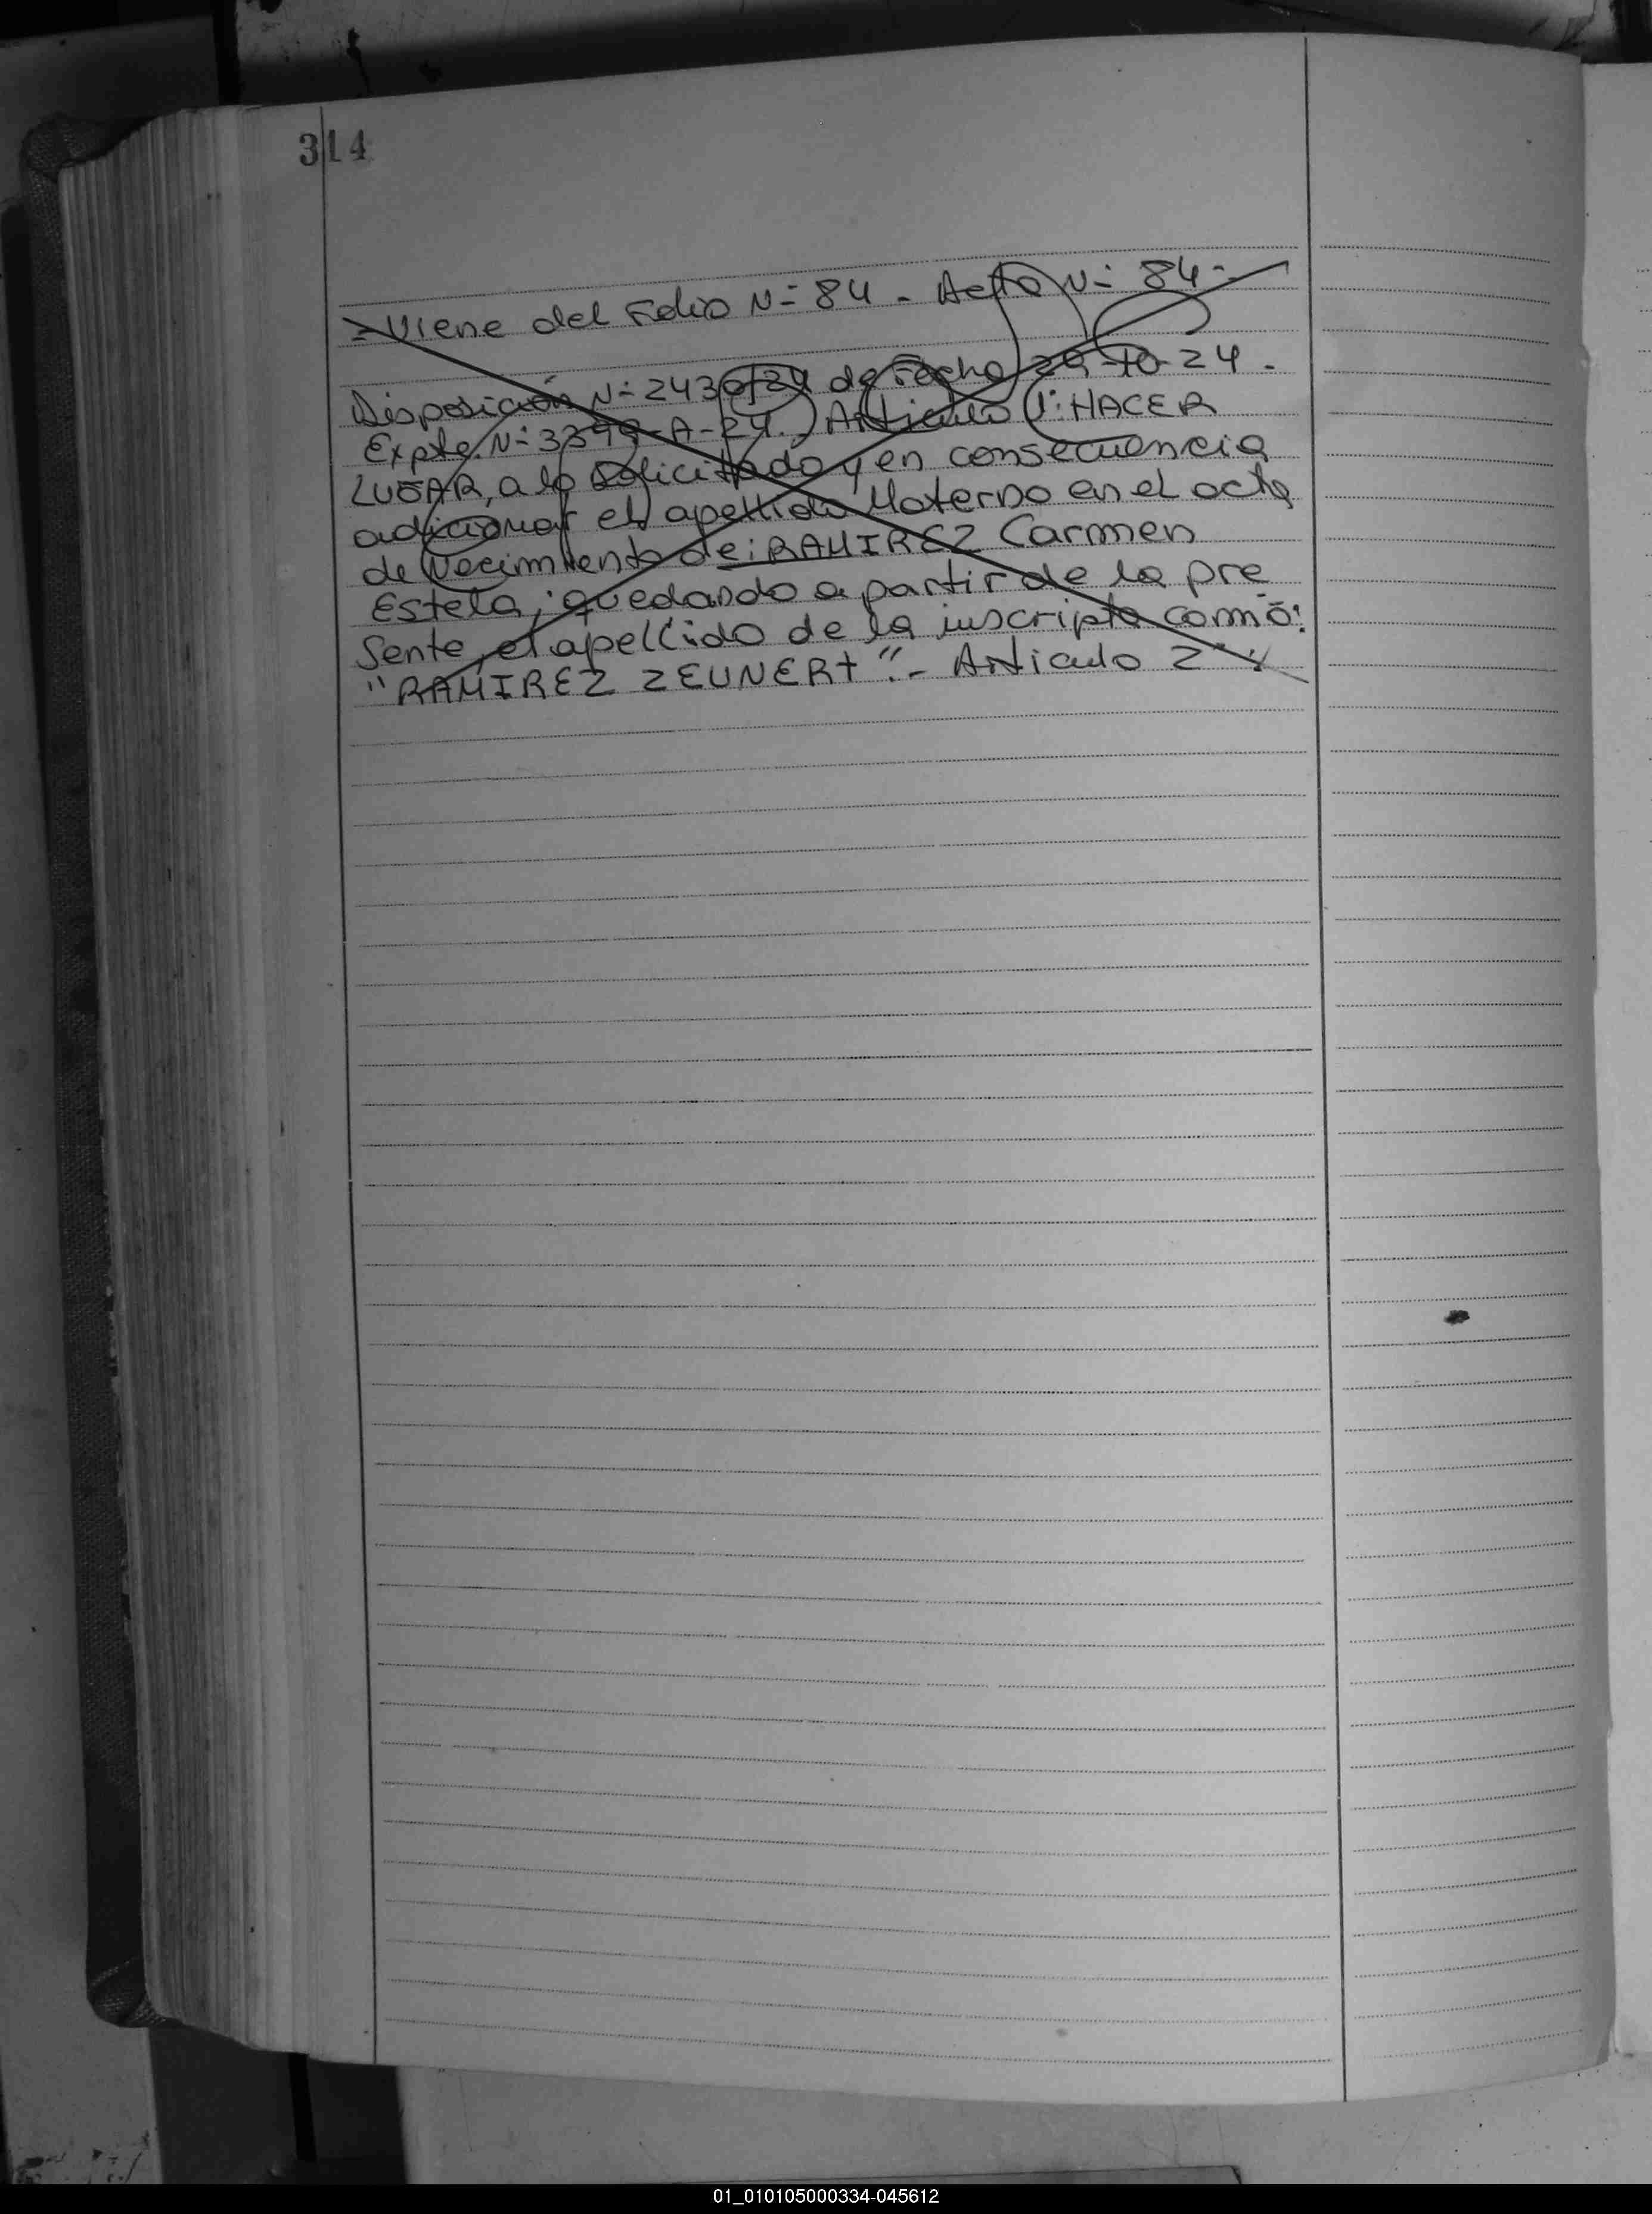 314
= Viene del Folio N= 84 - Acta N= 84 -
Disposición N= 2430/24 de Fecha 29-10-24.
Expte. N= 3399-A-24.) Articulo 1: HACER
LUGAR, a lo Solicitado y en consecuencia
adicionar el apellido Materno en el acta
de Nacimiento de: RAMIREZ Carmen
Estela, quedando a partir de la pre
sente, el apellido de la inscripta como:
"RAMIREZ ZEUNERT".- Articulo 2°:
01_010105000334-045612